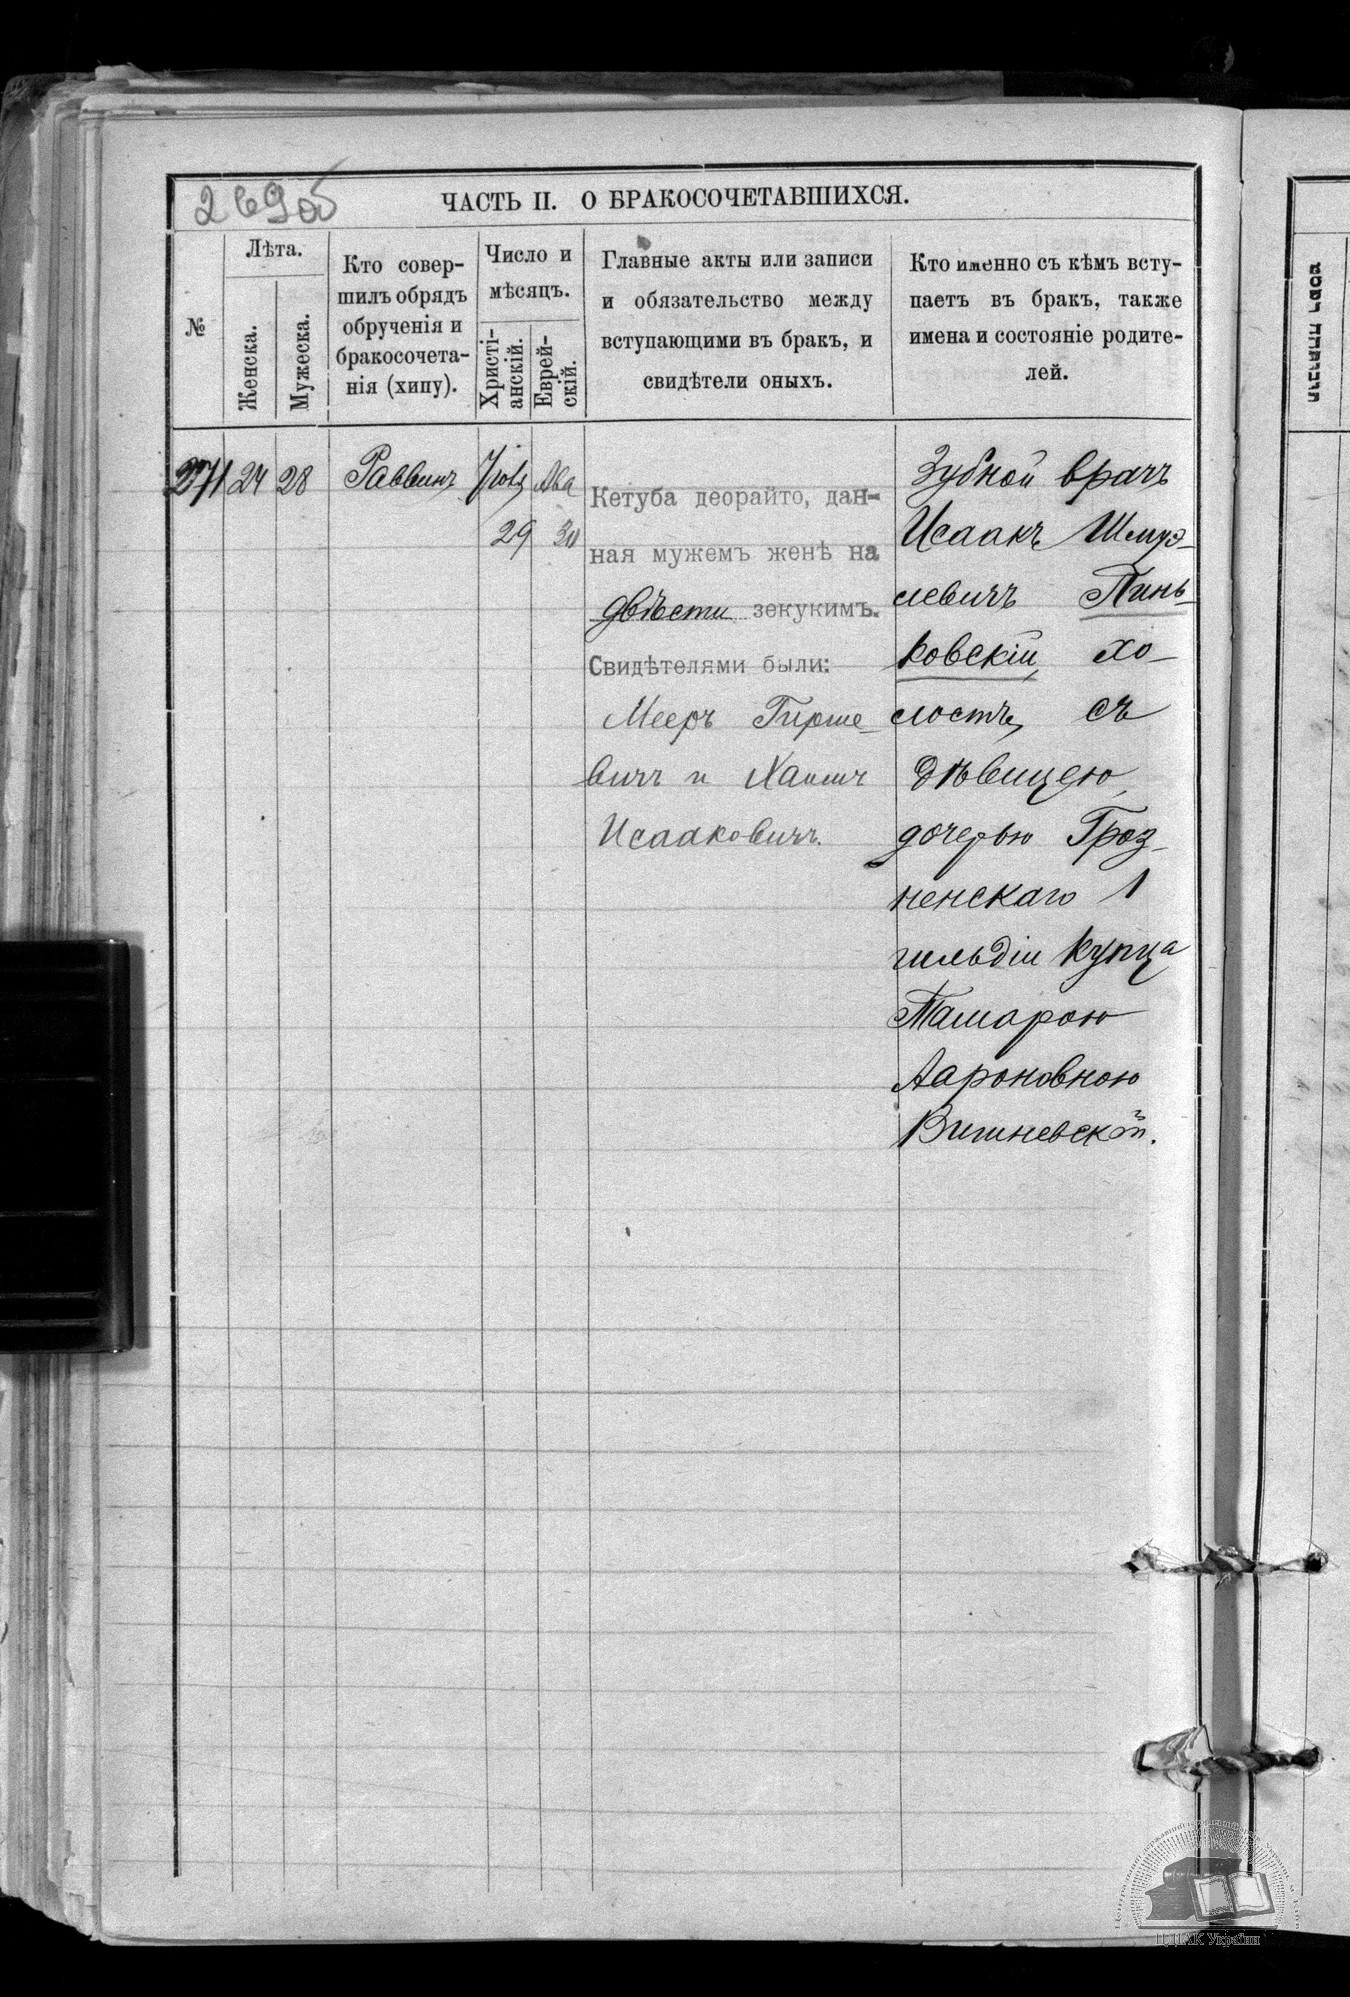 269об
ЧАСТЬ II. О БРАКОСОЧЕТАВШИХСЯ.
№
Лѣта.
Женска.
Мужеска.
Кто совер-
шилъ обрядъ
обрученія и
бракосочета-
нія (хипу).
Число и
мѣсяцъ.
Христі-
анскій.
Еврей-
скій.
Главные акты или записи
и обязательство между
вступающими въ бракъ, и
свидѣтели оныхъ.
Кто именно съ кѣмъ всту-
паетъ въ бракъ, также
имена и состояніе родите-
лей.
271
24
28
Раввинъ
Іюля
29
Ава
30
Кетуба деорайто, дан-
ная мужемъ женѣ на
двѣсти зекукимъ.
Свидѣтелями были:
Мееръ Гирше-
вичъ и Хаимъ
Исааковичъ.
Зубной врачъ
Исаакъ Шмуэ-
левичъ Пинь-
ковскій, хо-
лостъ, съ
дѣвицею,
дочерью Гроз-
ненскаго 1
гильдіи купца
Тамарою
Аароновною
Вишневской.
ЦДІАК України